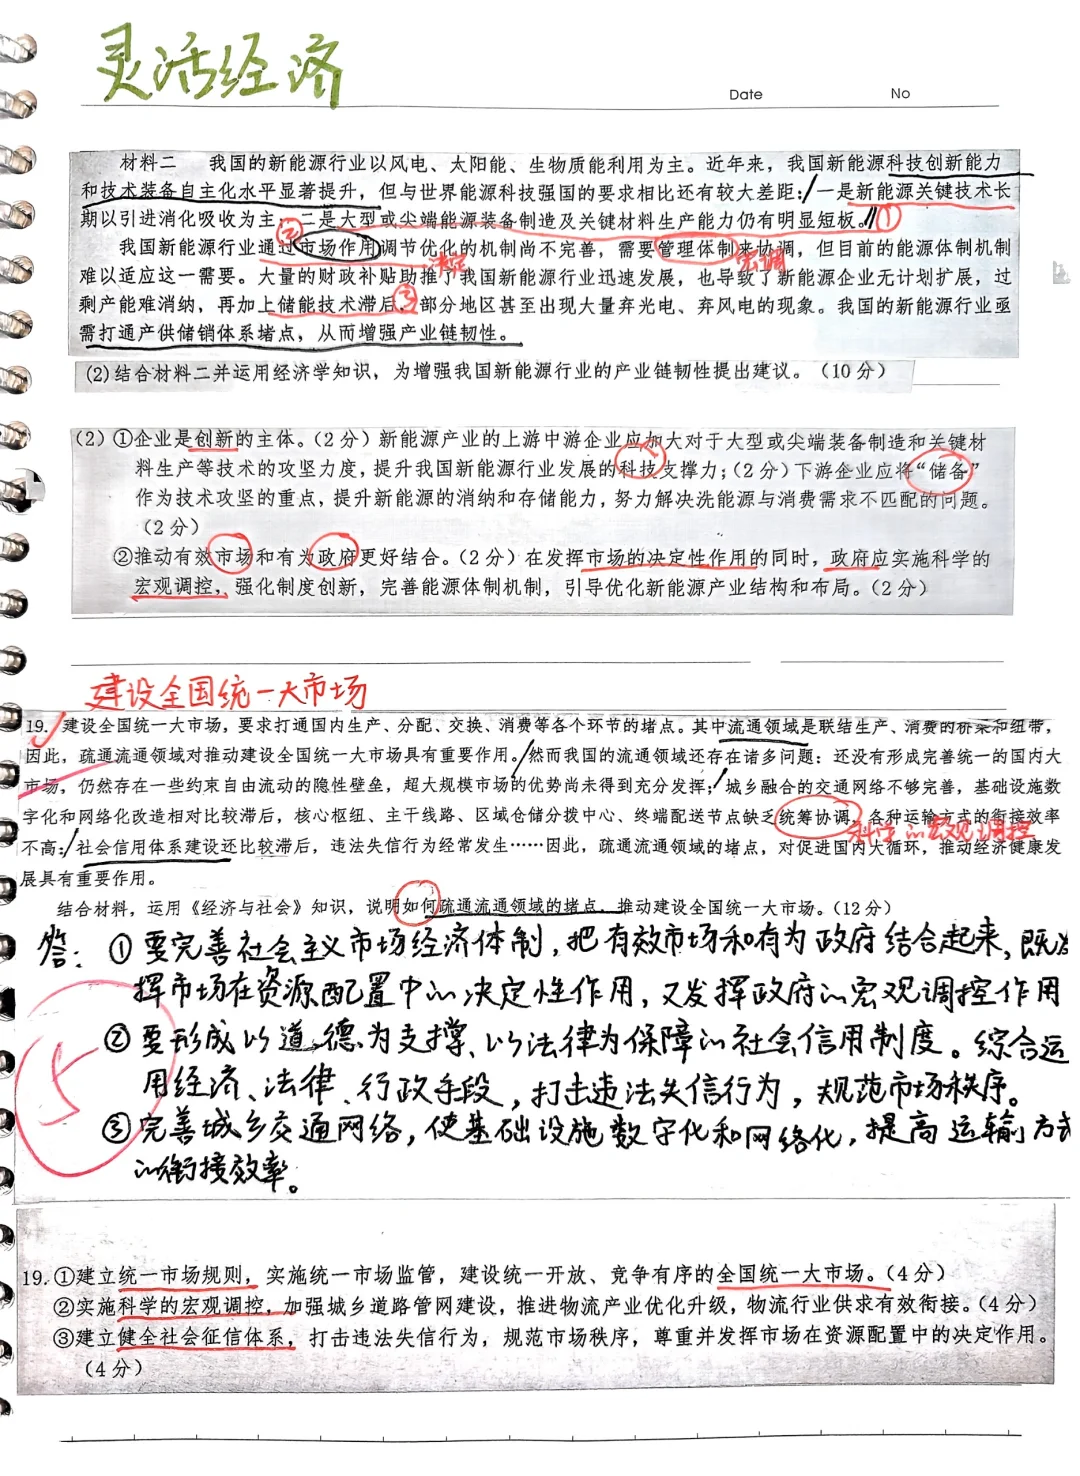 灵活经济
Date No
材料二 我国的新能源行业以风电、太阳能、生物质能利用为主。近年来，我国新能源科技创新能力
和技术装备自主化水平显著提升，但与世界能源科技强国的要求相比还有较大差距：一是新能源关键技术长
期以引进消化吸收为主；二是大型或尖端能源装备制造及关键材料生产能力仍有明显短板。①
②
我国新能源行业通过市场作用调节优化的机制尚不完善，需要管理体制来协调，但目前的能源体制机制
决定 宏调
难以适应这一需要。大量的财政补贴助推了我国新能源行业迅速发展，也导致了新能源企业无计划扩展，过
剩产能难消纳，再加上储能技术滞后，③部分地区甚至出现大量弃光电、弃风电的现象。我国的新能源行业亟
需打通产供储销体系堵点，从而增强产业链韧性。
(2)结合材料二并运用经济学知识，为增强我国新能源行业的产业链韧性提出建议。（10分）
（2）①企业是创新的主体。（2分）新能源产业的上游中游企业应加大对于大型或尖端装备制造和关键材
料生产等技术的攻坚力度，提升我国新能源行业发展的科技支撑力；（2分）下游企业应将“储备”
作为技术攻坚的重点，提升新能源的消纳和存储能力，努力解决洗能源与消费需求不匹配的问题。
（2分）
②推动有效市场和有为政府更好结合。（2分）在发挥市场的决定性作用的同时，政府应实施科学的
宏观调控，强化制度创新，完善能源体制机制，引导优化新能源产业结构和布局。（2分）
建设全国统一大市场
19. 建设全国统一大市场，要求打通国内生产、分配、交换、消费等各个环节的堵点。其中流通领域是联结生产、消费的桥梁和纽带，
因此，疏通流通领域对推动建设全国统一大市场具有重要作用。然而我国的流通领域还存在诸多问题：还没有形成完善统一的国内大
市场，仍然存在一些约束自由流动的隐性壁垒，超大规模市场的优势尚未得到充分发挥；城乡融合的交通网络不够完善，基础设施数
字化和网络化改造相对比较滞后，核心枢纽、主干线路、区域仓储分拨中心、终端配送节点缺乏统筹协调，各种运输方式的衔接效率
科学的宏观调控
不高；社会信用体系建设还比较滞后，违法失信行为经常发生……因此，疏通流通领域的堵点，对促进国内大循环，推动经济健康发
展具有重要作用。
结合材料，运用《经济与社会》知识，说明如何疏通流通领域的堵点，推动建设全国统一大市场。（12分）
答：①要完善社会主义市场经济体制，把有效市场和有为政府结合起来，既发
挥市场在资源配置中的决定性作用，又发挥政府的宏观调控作用
②要形成以道德为支撑、以法律为保障的社会信用制度。综合运
用经济、法律、行政手段，打击违法失信行为，规范市场秩序。
5
③完善城乡交通网络，使基础设施数字化和网络化，提高运输方式
的衔接效率。
19.①建立统一市场规则，实施统一市场监管，建设统一开放、竞争有序的全国统一大市场。（4分）
②实施科学的宏观调控，加强城乡道路管网建设，推进物流产业优化升级，物流行业供求有效衔接。（4分）
③建立健全社会征信体系，打击违法失信行为，规范市场秩序，尊重并发挥市场在资源配置中的决定作用。
（4分）